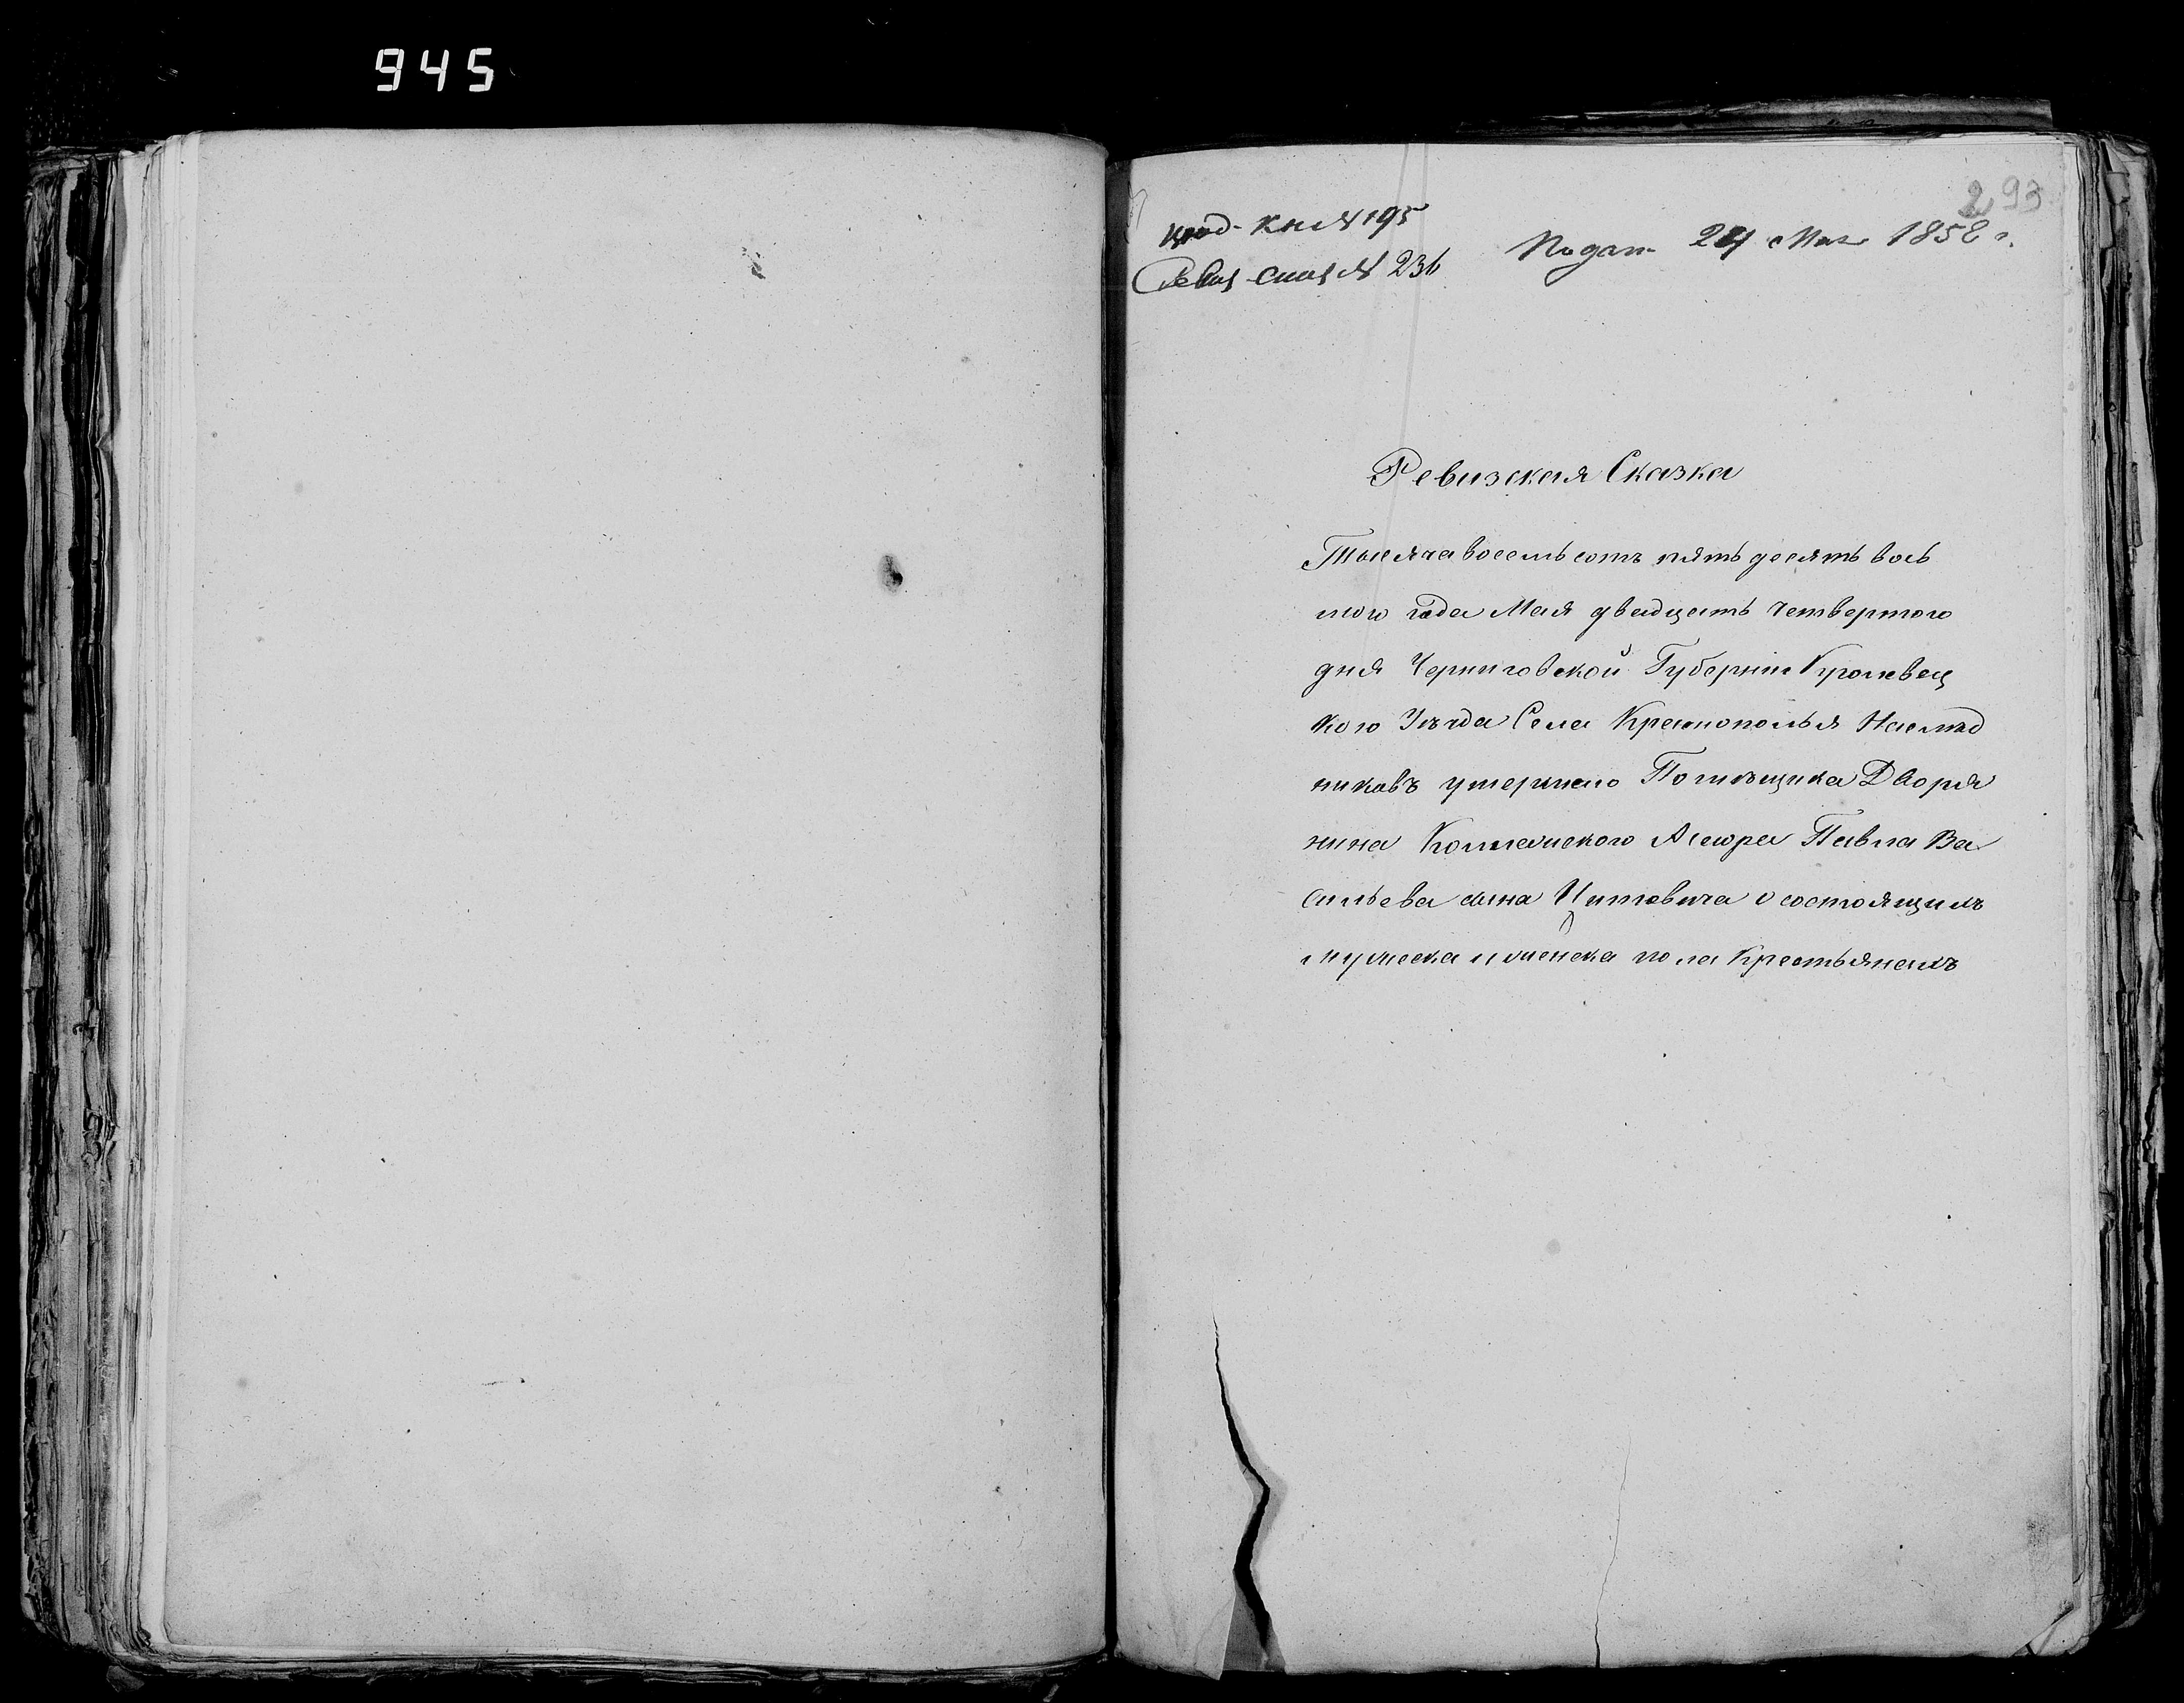 945
293
вход. Кн. № 195
Ревиз. Сказ. № 236
Подан 24 Мая 1858 г.
Ревизская Сказка
Тысяча восемь сотъ пять десятъ вось
мого года Мая двадцать четвертого
дня Черниговской Губерніи Кролевец
кого Уѣзда Села Краснополья Наслѣд
никовъ умершего Помѣщика Дворя
нина Коллежского Асесора Павла Ва
сильева сына Цитовича о состоящихъ
мужеска и женска пола Крестьянахъ